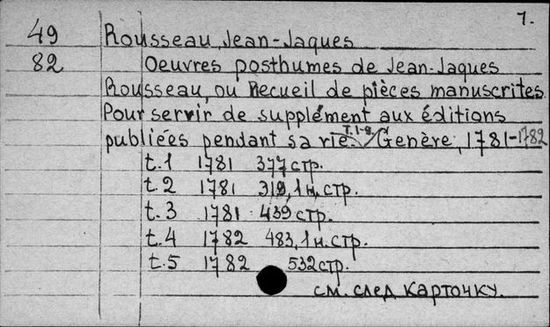 7.
49 Rousseau, Jean-Jaques
82 Oeuvres posthumes de Jean-Jaques
Rousseau, ou Recueil de pièces manuscrites
Pour servir de supplément aux éditions
publiées pendant sa vie. T.1-8. Genève, 1781-1782
t.1 1781 377 стр.
t.2 1781 319, 1 н. стр.
t.3 1781 439 стр.
t.4 1782 483, 1 н. стр.
t.5 1782 532 стр.
см. след карточку.